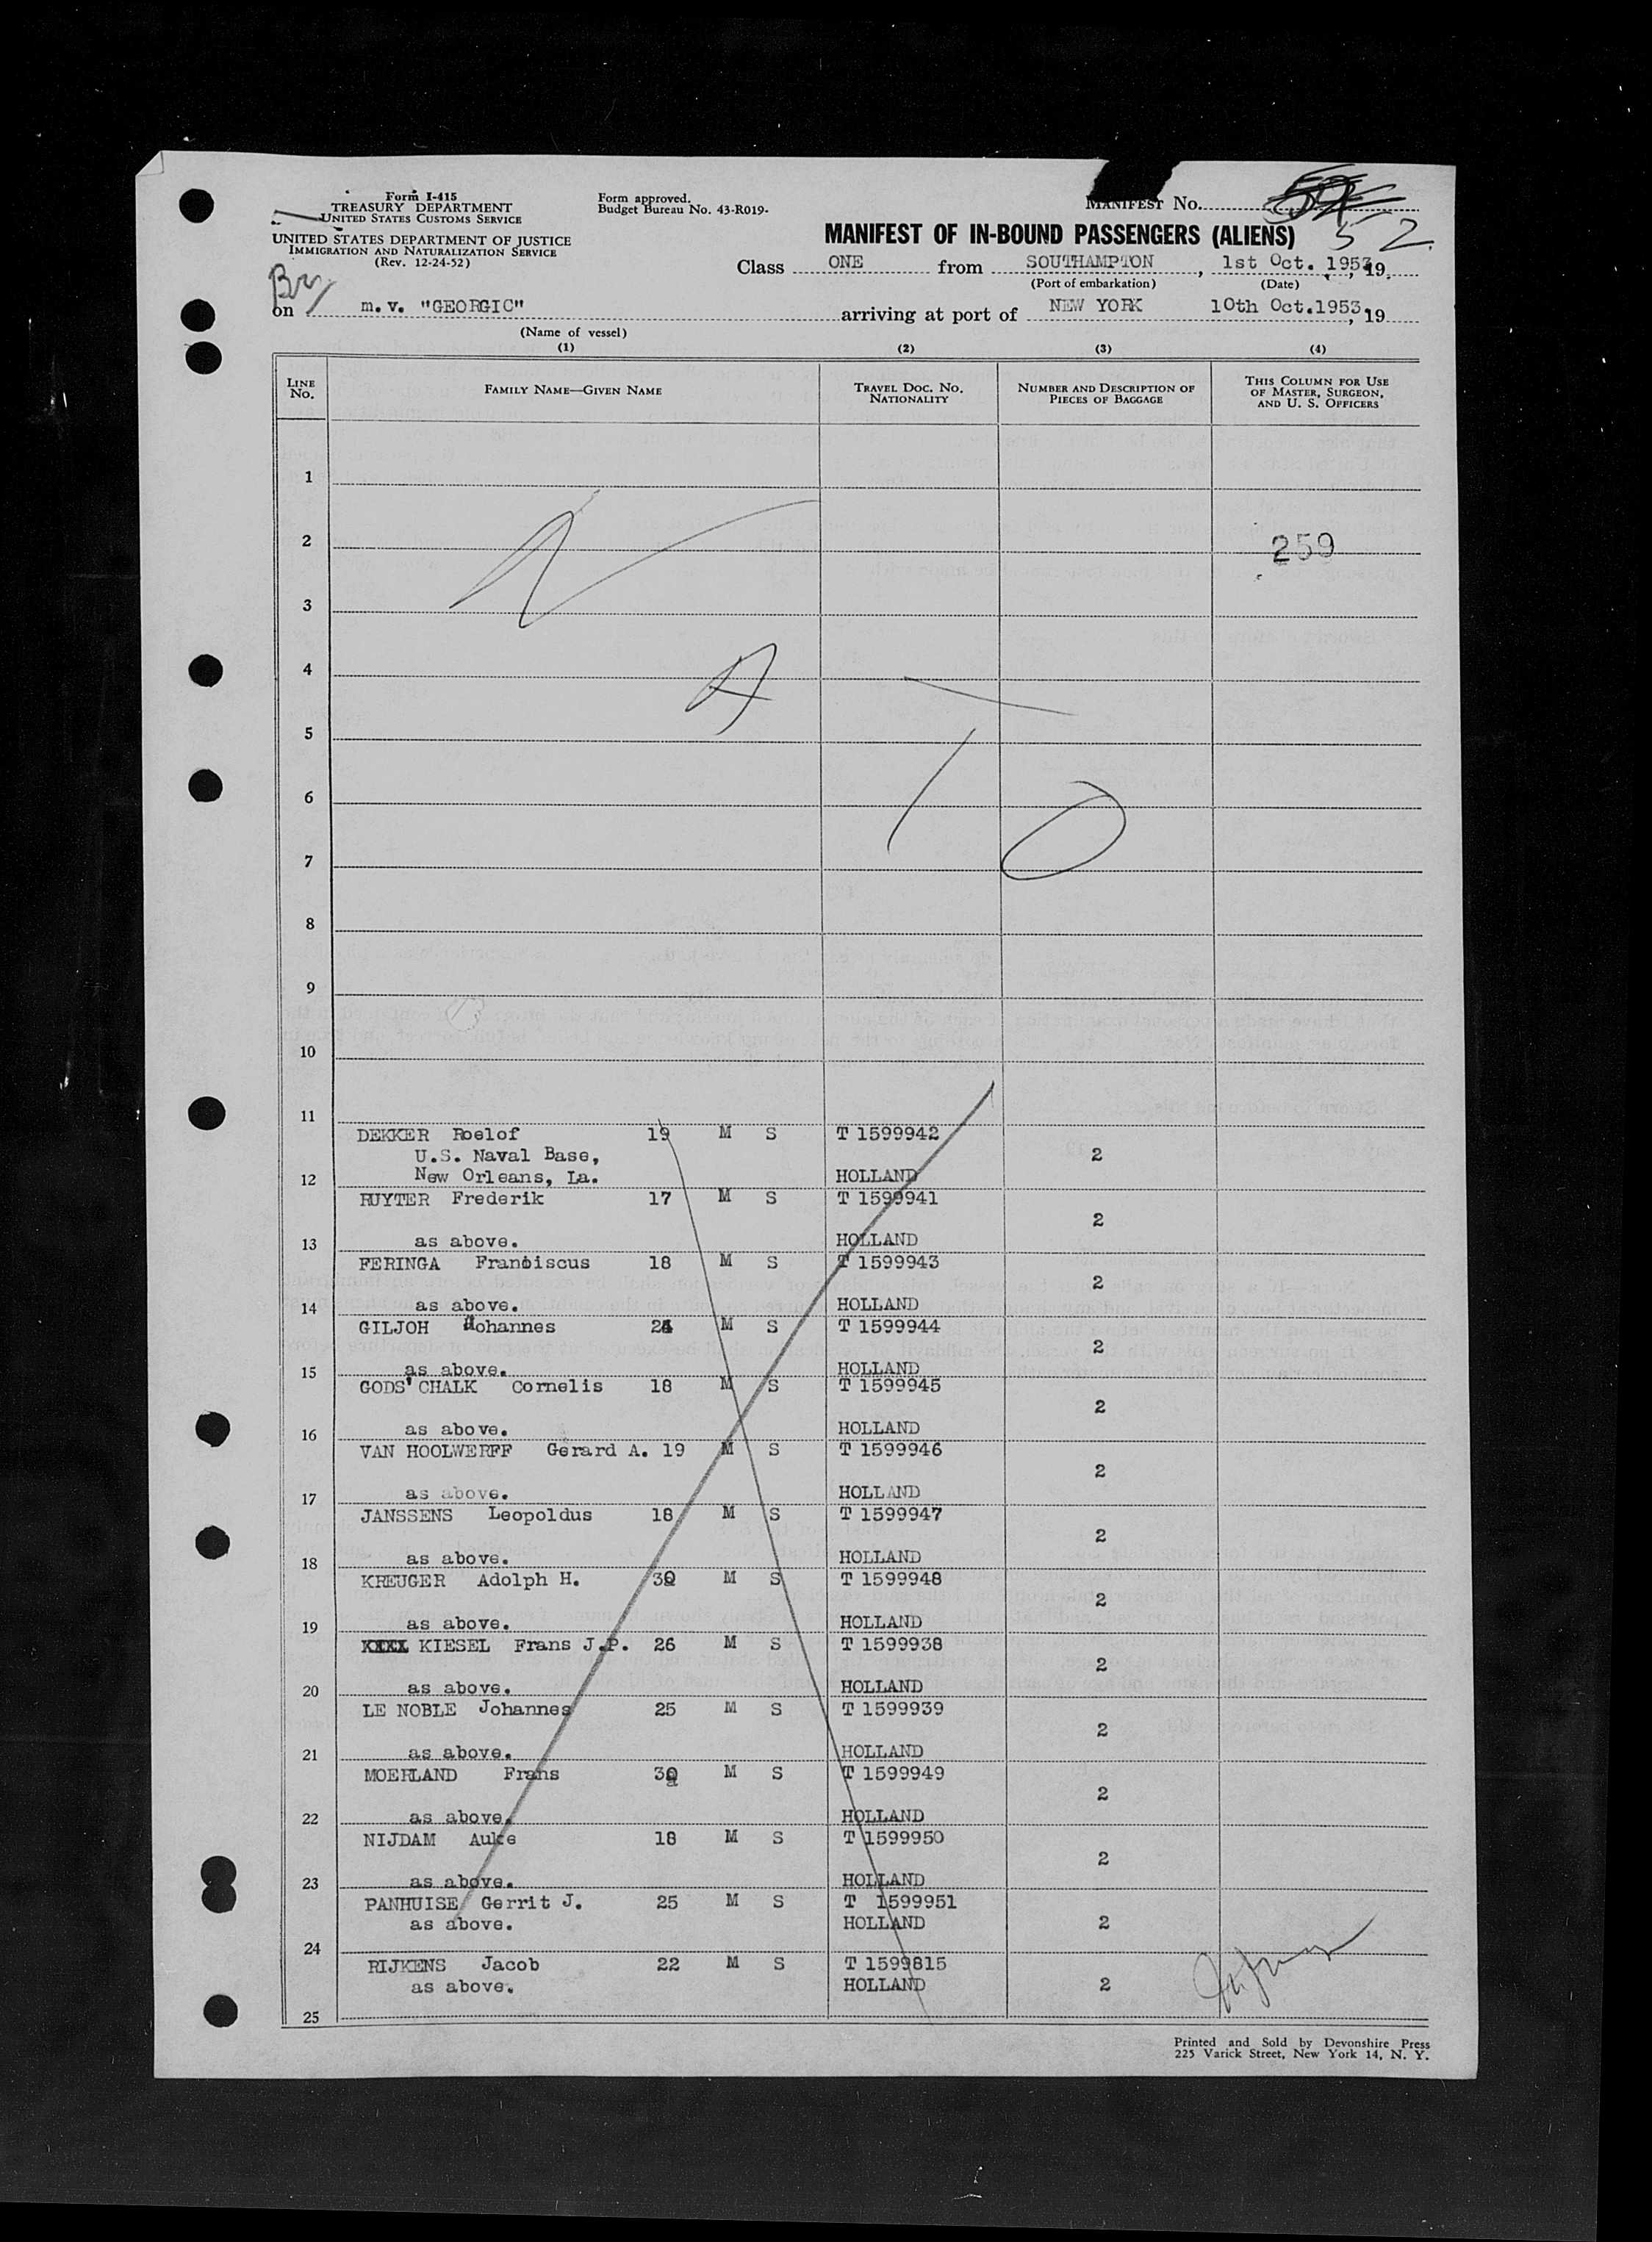 Form I-415
TREASURY DEPARTMENT
UNITED STATES CUSTOMS SERVICE
UNITED STATES DEPARTMENT OF JUSTICE
IMMIGRATION AND NATURALIZATION SERVICE
(Rev. 12-24-52)
Form approved.
Budget Bureau No. 43-R019-
MANIFEST No. 52
MANIFEST OF IN-BOUND PASSENGERS (ALIENS)
Class ONE from SOUTHAMPTON, 1st Oct. 1953, 19
(Port of embarkation) (Date)
on m.v. "GEORGIC" arriving at port of NEW YORK 10th Oct.1953, 19
(Name of vessel)
(1) (2) (3) (4)
LINE No. FAMILY NAME—GIVEN NAME TRAVEL DOC. NO. NATIONALITY NUMBER AND DESCRIPTION OF PIECES OF BAGGAGE THIS COLUMN FOR USE OF MASTER, SURGEON, AND U. S. OFFICERS
1
2 259
3
N
4
A T
5
6
O
7
8
9
10
11
DEKKER Roelof 19 M S T 1599942
U.S. Naval Base, 2
12 New Orleans, La. HOLLAND
RUYTER Frederik 17 M S T 1599941
2
13 as above. HOLLAND
FERINGA Franciscus 18 M S T 1599943
2
14 as above. HOLLAND
GILJOH Johannes M S T 1599944
2
15 as above. HOLLAND
GODS'CHALK Cornelis 18 M S T 1599945
2
16 as above. HOLLAND
VAN HOOLWERFF Gerard A. 19 M S T 1599946
2
17 as above. HOLLAND
JANSSENS Leopoldus 18 M S T 1599947
2
18 as above. HOLLAND
KREUGER Adolph H. M S T 1599948
2
19 as above. HOLLAND
XXXX KIESEL Frans J.P. 26 M S T 1599938
2
20 as above. HOLLAND
LE NOBLE Johannes 25 M S T 1599939
2
21 as above. HOLLAND
MOERLAND Frans M S T 1599949
2
22 as above. HOLLAND
NIJDAM Auke 18 M S T 1599950
2
23 as above. HOLLAND
PANHUISE Gerrit J. 25 M S T 1599951
as above. HOLLAND 2
24
RIJKENS Jacob 22 M S T 1599815
as above. HOLLAND 2
25
Printed and Sold by Devonshire Press
225 Varick Street, New York 14, N. Y.